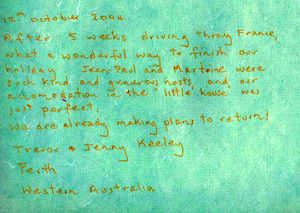 12th October 2004
After 5 weeks driving throug France,
what a wonderful way to finish our
holiday. Jean-Paul and Martine were
such kind and generous hosts, and our
accomodation in the "little house" was
just perfect.
We are already making plans to return!
Trevor & Jenny Keeley
Perth
Western Australia